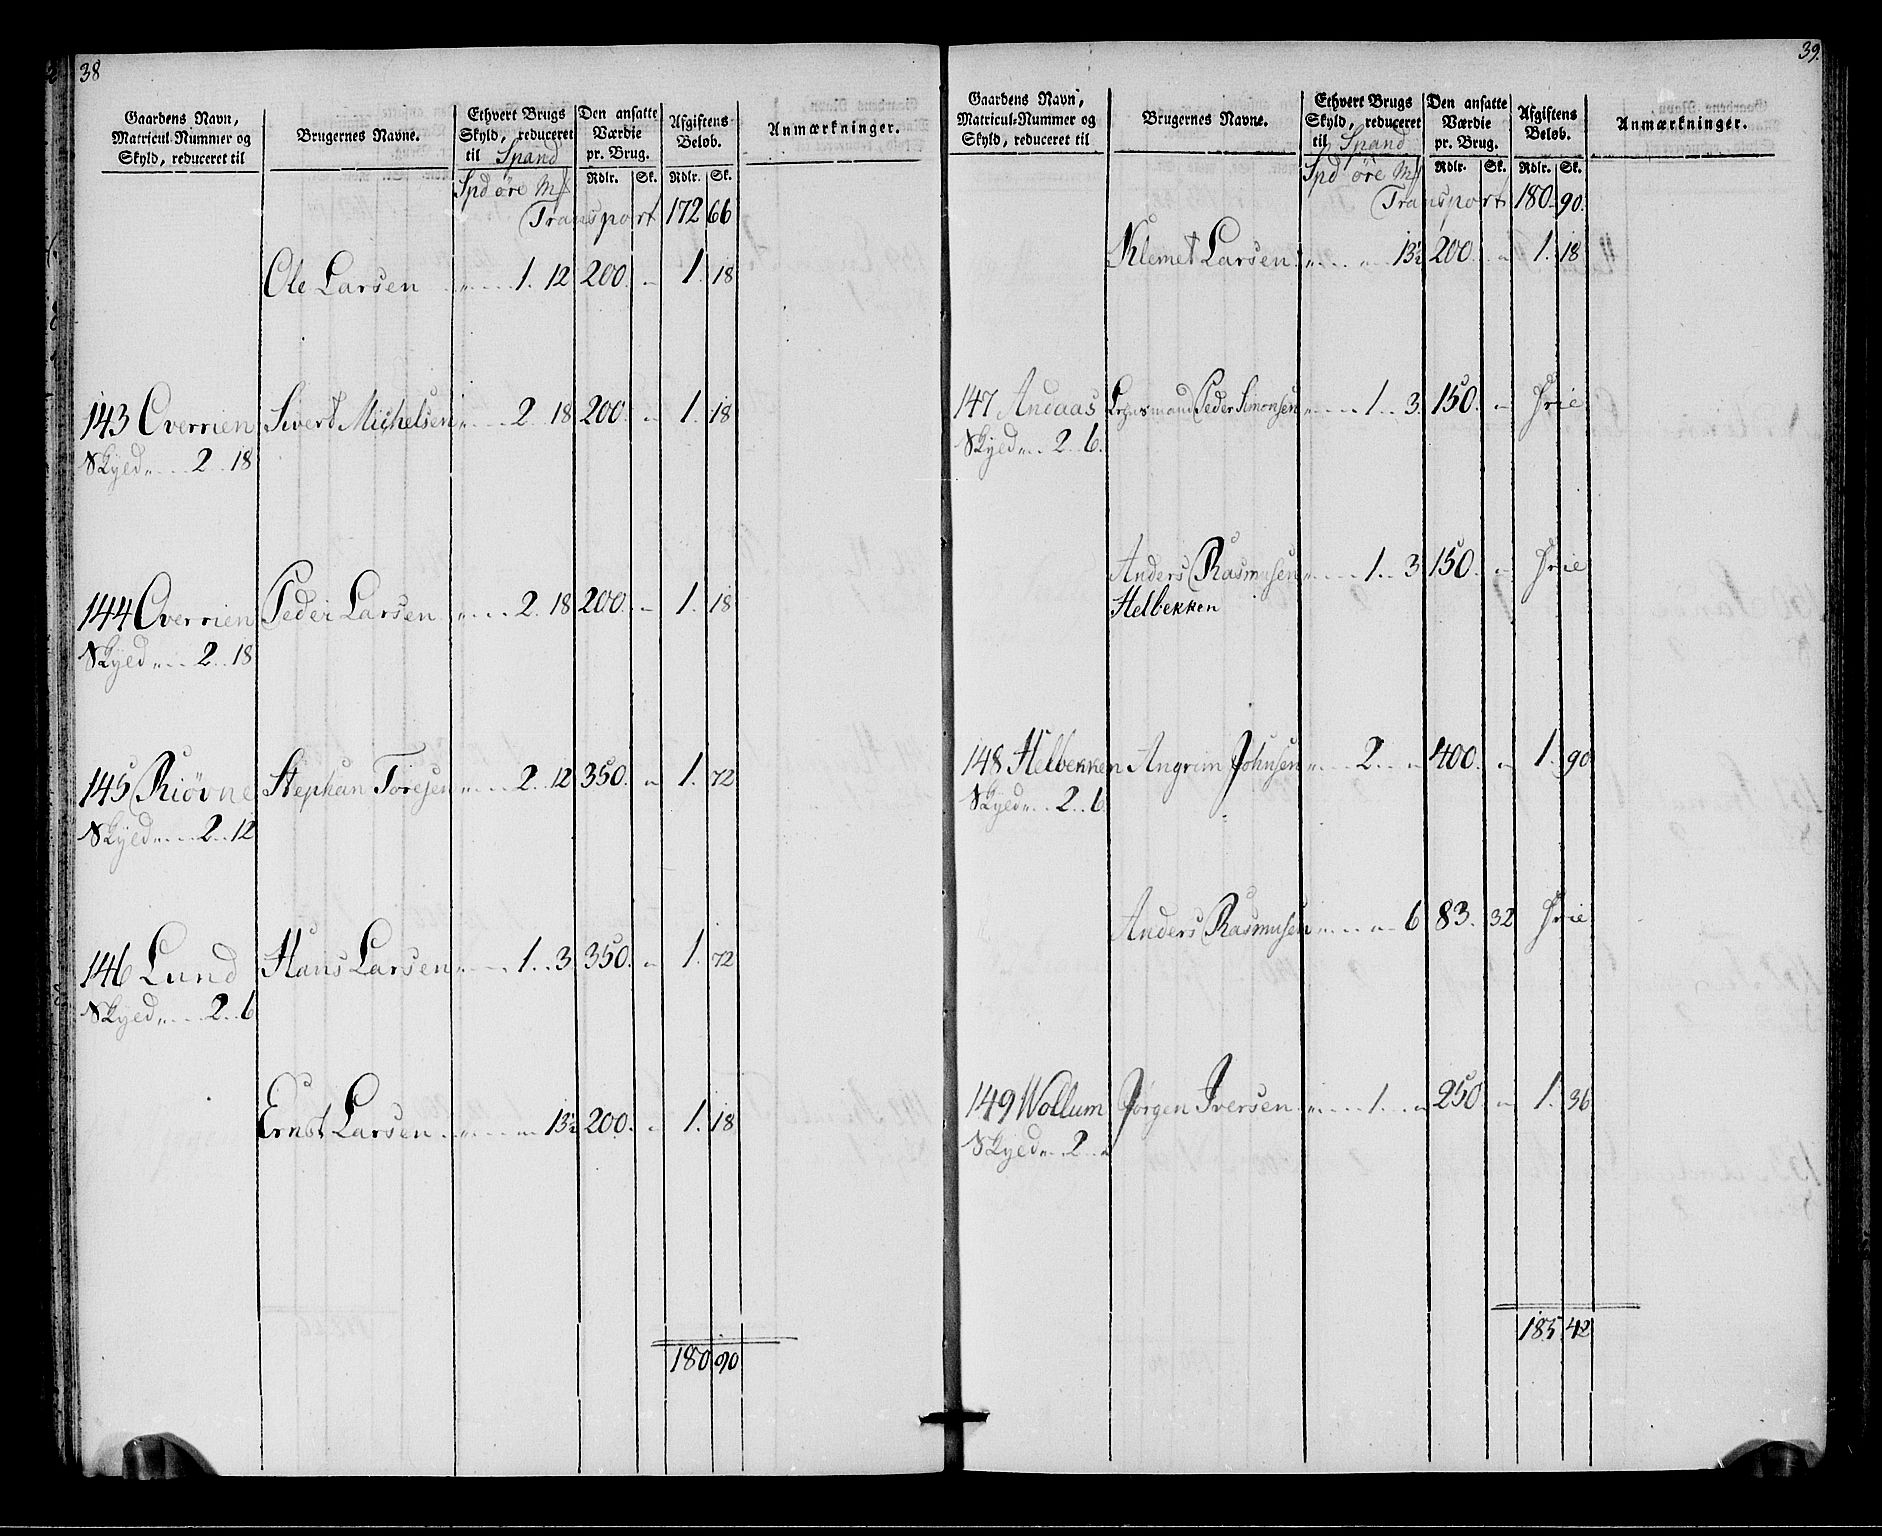 38
Gaardens Navn, Matricul-Nummer og Skyld, reduceret til
Brugernes Navne.
Ethvert Brugs Skyld, reduceret til Spand
Den ansatte Værdie pr. Brug.
Afgiftens Beløb.
Anmærkninger.
Rdlr. Sk. Rdlr. Sk.
Spd øre Mk
Transport 172 66
Ole Larsen „ 1. 12 200. „ 1. 18
143 Overrien Sivert Michelsen „ 2 18 200. „ 1. 18
Skyld „ 2 18
144 Overrien Peder Larsen „ 2. 18 200. „ 1. 18
Skyld „ 2. 18
145 Riövne Stephan Toresen „ 2. 12 350. „ 1. 72
Skyld „ 2. 12
146 Lund Hans Larsen „ 1. 3. 350. „ 1. 72
Skyld „ 2. 6
Ernst Larsen „ „ 13½ 200. „ 1. 18
180. 90
39.
Gaardens Navn, Matricul-Nummer og Skyld, reduceret til
Brugernes Navne.
Ethvert Brugs Skyld, reduceret til Spand
Den ansatte Værdie pr. Brug.
Afgiftens Beløb.
Anmærkninger.
Rdlr. Sk. Rdlr. Sk.
Spd øre Mk
Transport 180. 90.
Klemet Larsen „ „ 13½ 200. „ 1. 18
147 Andaas Peder Simonsen „ 1. 3. 150. „ Frie
Skyld „ 2. 6.
Anders Rasmusen „ 1. 3 150. „ Frie
Helbekken
148 Helbekken Angrim Johnsen „ 2. „ 400. „ 1. 90
Skyld „ 2. 6
Anders Rasmusen „ „ 6 83. 32 Frie
149 Wollum Jørgen Iversen „ 1. „ 250 „ 1. 36
Skyld „ 2. „
185. 42